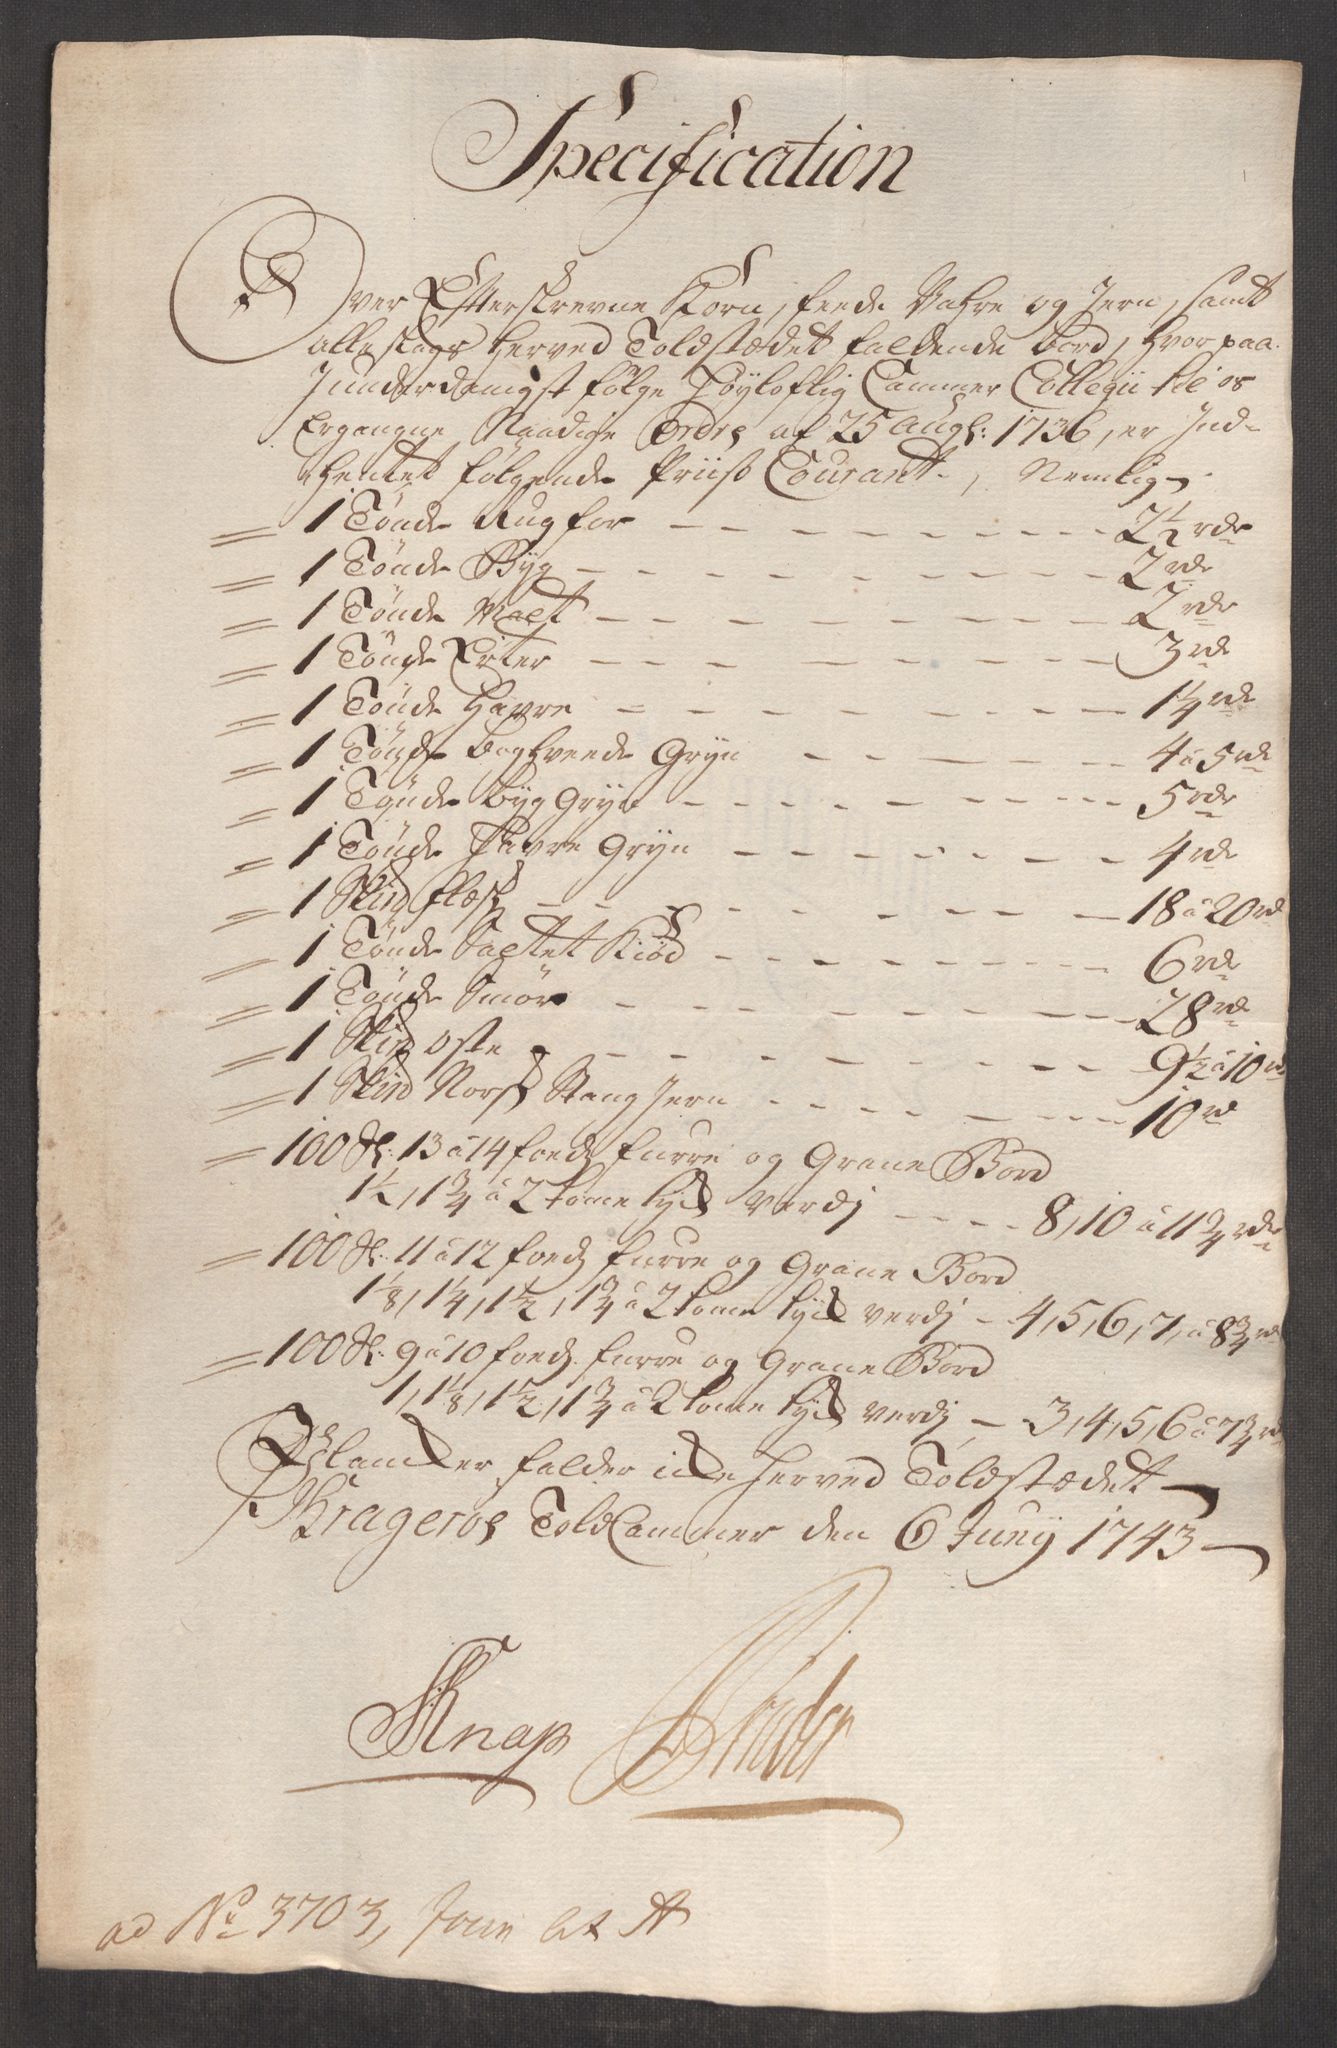 Specification
Over Efterskrevne Korn, feede Vahre og Jern, samt
alle slags herved Toldstædet faldende bord, hvor paa
J underdanigst følge Høyloflig Cammer Collegii til os
Ergangne Naadige Ordre af 25 Augs: 1736, er Ind-
hentet følgende Priis Courant, Nemlig
1 Tønde Rug for 2½ rdr
1 Tønde Byg 2 rdr
1 Tønde Malt 2 rdr
1 Tønde Erter 3 rd
1 Tønde Havre 1¼ rdr
1 Tønde boghveede Gryn 4 a 5 rd
1 Tønde byg Gryn 5 rdr
1 Tønde Havre Gryn 4 rd
1 Skпd flesk 18 a 20 rd
1 Tønde Saltet Kiød 6 rd
1 Tønde Smør 28 rd
1 Skпd oste 9½ a 10 rd
1 Skпd Norsk Stang Jern 10 rd
100 St: 13 a 14 foed furre og Grane Bord
1½, 1¾ a 2 tome tyk verdj 8, 10 a 11¾ rdr
100 St: 11 a 12 foed furre og Grane Bord
1⅛, 1¼, 1½, 1¾ a 2 tome tyk verdj 4, 5, 6, 7, a 8¾ rd
100 St: 9 a 10 foed furre og Grane Bord
1, 1⅛, 1½, 1¾ a 2 tome tyk verdj 3, 4, 5, 6 a 7¾ rd
Plancker falder icke herved Toldstædet
Krageröe Told Cammer den 6 Juny 1743
Knap
ad No 3703, Jour Lit A